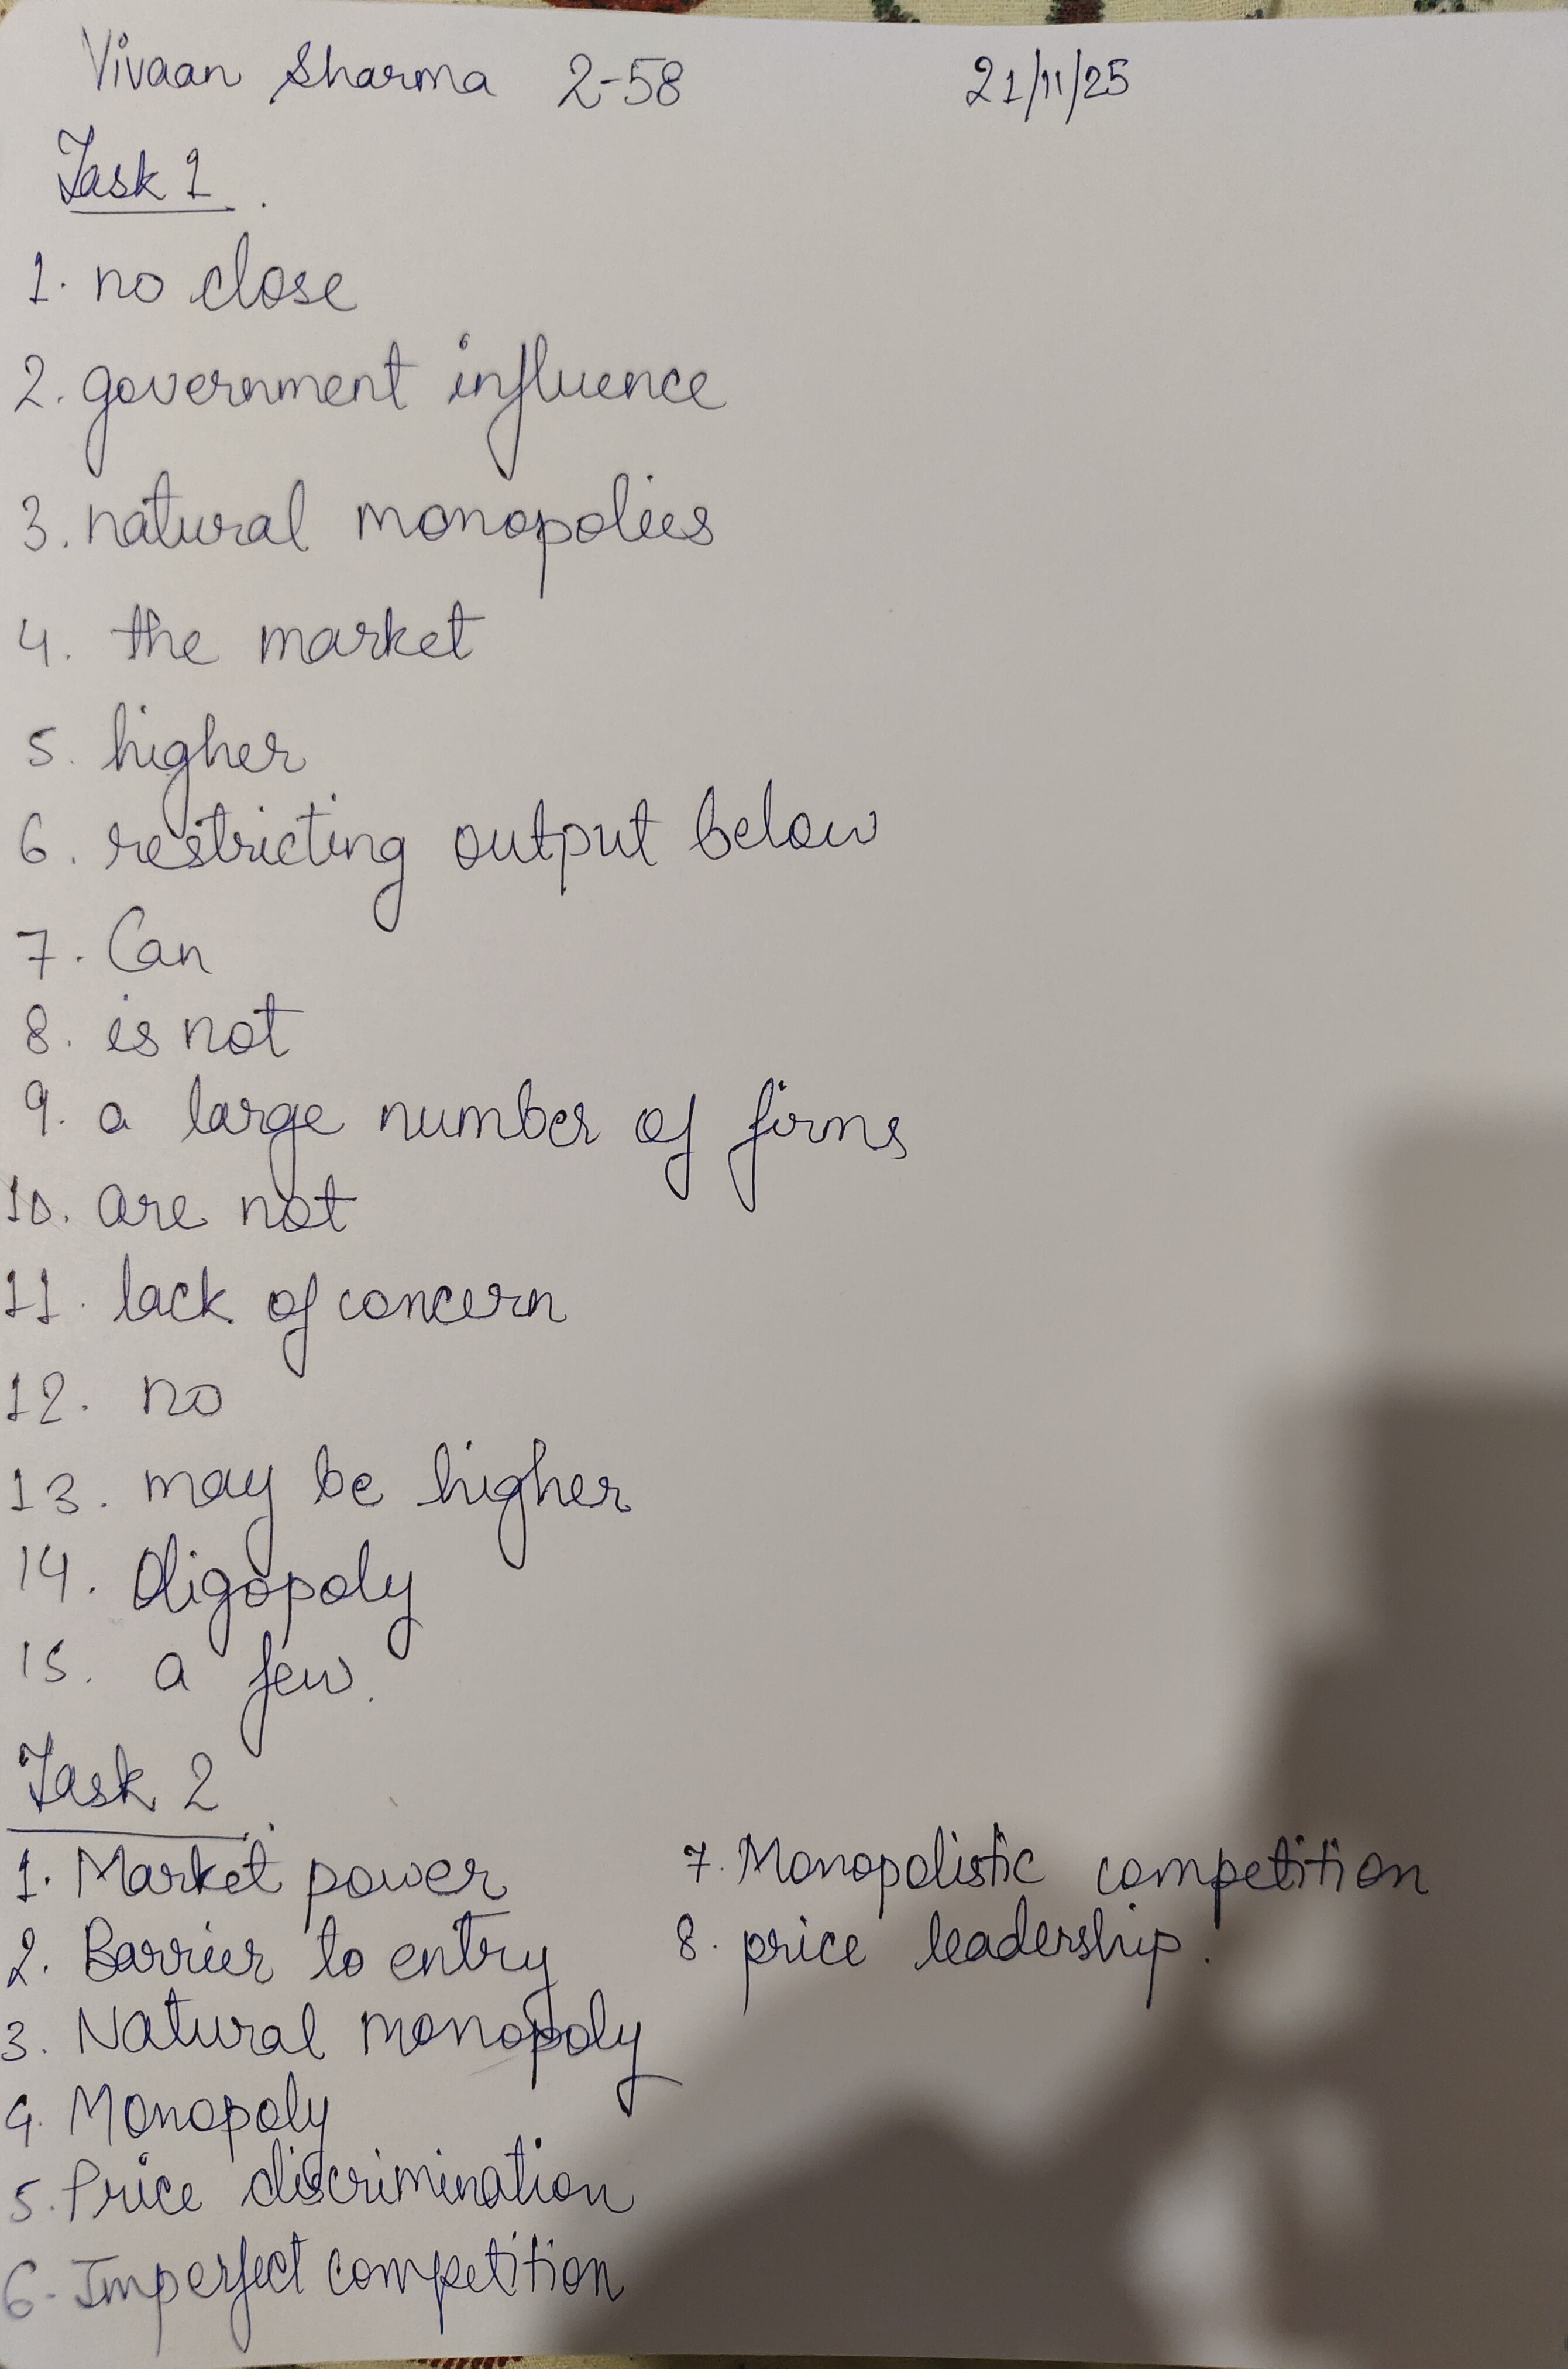 Vivaan Sharma 2-58 21/11/25
Task 1.
1. no close
2. government influence
3. natural monopolies
4. the market
5. higher
6. restricting output below
7. Can
8. is not
9. a large number of firms
10. are not
11. lack of concern
12. no
13. may be higher
14. Oligopoly
15. a few.
Task 2.
1. Market power
2. Barrier to entry
3. Natural monopoly
4. Monopoly
5. Price discrimination
6. Imperfect competition
7. Monopolistic competition
8. price leadership.